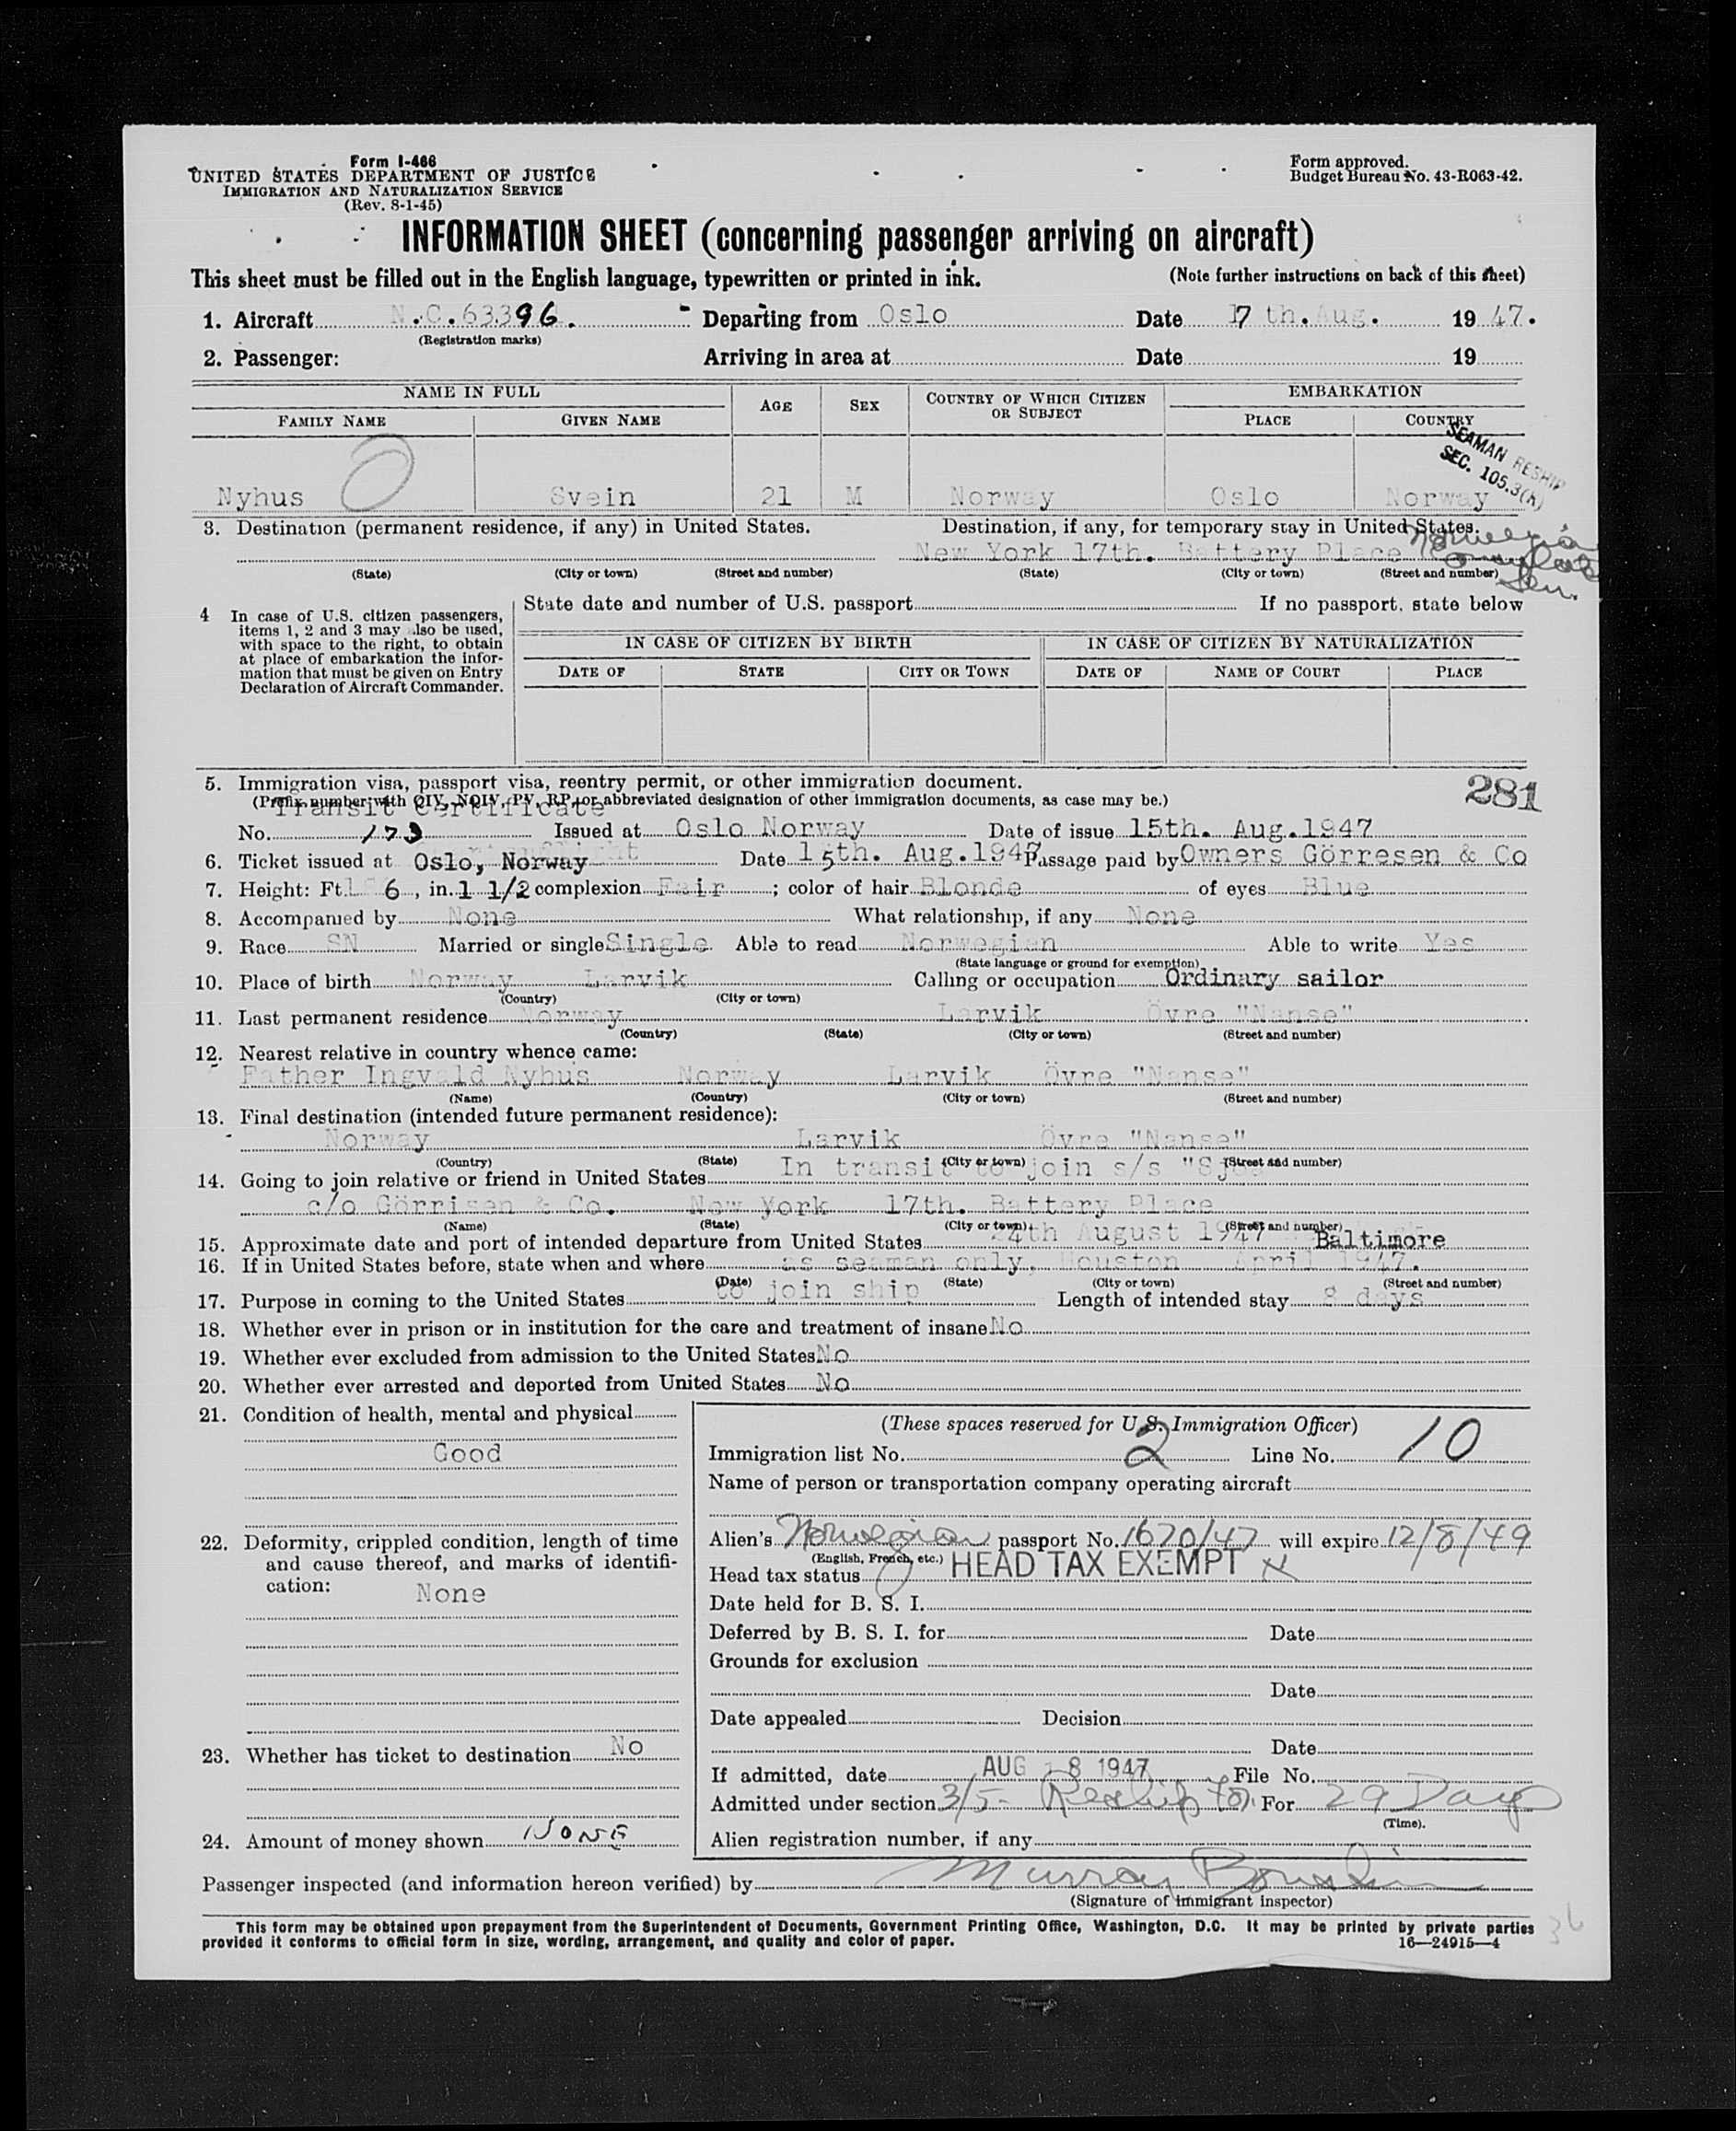 Form I-466
UNITED STATES DEPARTMENT OF JUSTICE
IMMIGRATION AND NATURALIZATION SERVICE
(Rev. 8-1-45)
Form approved.
Budget Bureau No. 43-R063-42.
INFORMATION SHEET (concerning passenger arriving on aircraft)
This sheet must be filled out in the English language, typewritten or printed in ink. (Note further instructions on back of this sheet)
1. Aircraft N.C.63396. Departing from Oslo Date 17 th. Aug. 19 47.
(Registration marks)
2. Passenger: Arriving in area at Date 19
NAME IN FULL AGE SEX COUNTRY OF WHICH CITIZEN OR SUBJECT EMBARKATION
FAMILY NAME GIVEN NAME PLACE COUNTRY
SEAMAN RESHIP
SEC. 105.3(K)
Nyhus Svein 21 M Norway Oslo Norway
3. Destination (permanent residence, if any) in United States. Destination, if any, for temporary stay in United States.
New York 17th. Battery Place
Norwegian
(State) (City or town) (Street and number) (State) (City or town) (Street and number)
4 In case of U.S. citizen passengers, items 1, 2 and 3 may also be used, with space to the right, to obtain at place of embarkation the information that must be given on Entry Declaration of Aircraft Commander.
State date and number of U.S. passport If no passport, state below
IN CASE OF CITIZEN BY BIRTH IN CASE OF CITIZEN BY NATURALIZATION
DATE OF STATE CITY OR TOWN DATE OF NAME OF COURT PLACE
5. Immigration visa, passport visa, reentry permit, or other immigration document.
281
(Prefix number with QIV, NQIV, PV, RP, or abbreviated designation of other immigration documents, as case may be.)
Transit Certificate
No. 173 Issued at Oslo Norway Date of issue 15th. Aug.1947
6. Ticket issued at Oslo, Norway Date 15th. Aug.1947 Passage paid by Owners Görresen & Co
7. Height: Ft. 6, in. 1 1/2 complexion Fair; color of hair Blonde of eyes Blue
8. Accompanied by None What relationship, if any None
9. Race SN Married or single Single Able to read Norwegian Able to write Yes
(State language or ground for exemption)
10. Place of birth Norway Larvik Calling or occupation Ordinary sailor
(Country) (City or town)
11. Last permanent residence Norway Larvik Övre "Nanse"
(Country) (State) (City or town) (Street and number)
12. Nearest relative in country whence came:
Father Ingvald Nyhus Norway Larvik Övre "Nanse"
(Name) (Country) (City or town) (Street and number)
13. Final destination (intended future permanent residence):
Norway Larvik Övre "Nanse"
(Country) (State) (City or town) (Street and number)
14. Going to join relative or friend in United States In transit to join s/s
c/o Görrisen & Co. New York 17th. Battery Place
(Name) (State) (City or town) (Street and number)
15. Approximate date and port of intended departure from United States 24th August 1947 Baltimore
16. If in United States before, state when and where as seaman only, Houston April 1947.
(Date) (State) (City or town) (Street and number)
17. Purpose in coming to the United States to join ship Length of intended stay 8 days
18. Whether ever in prison or in institution for the care and treatment of insane No
19. Whether ever excluded from admission to the United States No
20. Whether ever arrested and deported from United States No
21. Condition of health, mental and physical
Good
22. Deformity, crippled condition, length of time and cause thereof, and marks of identification:
None
23. Whether has ticket to destination No
24. Amount of money shown NONE
(These spaces reserved for U.S. Immigration Officer)
Immigration list No. 2 Line No. 10
Name of person or transportation company operating aircraft
Alien's Norwegian passport No. 1670/47 will expire 12/8/49
(English, French, etc.)
Head tax status HEAD TAX EXEMPT
Date held for B. S. I.
Deferred by B. S. I. for Date
Grounds for exclusion
Date
Date appealed Decision
Date
If admitted, date AUG 18 1947 File No.
Admitted under section 3/5- Reship For 29 Days
(Time).
Alien registration number, if any
Passenger inspected (and information hereon verified) by Murray
(Signature of immigrant inspector)
This form may be obtained upon prepayment from the Superintendent of Documents, Government Printing Office, Washington, D.C. It may be printed by private parties
provided it conforms to official form in size, wording, arrangement, and quality and color of paper. 16—24915-4